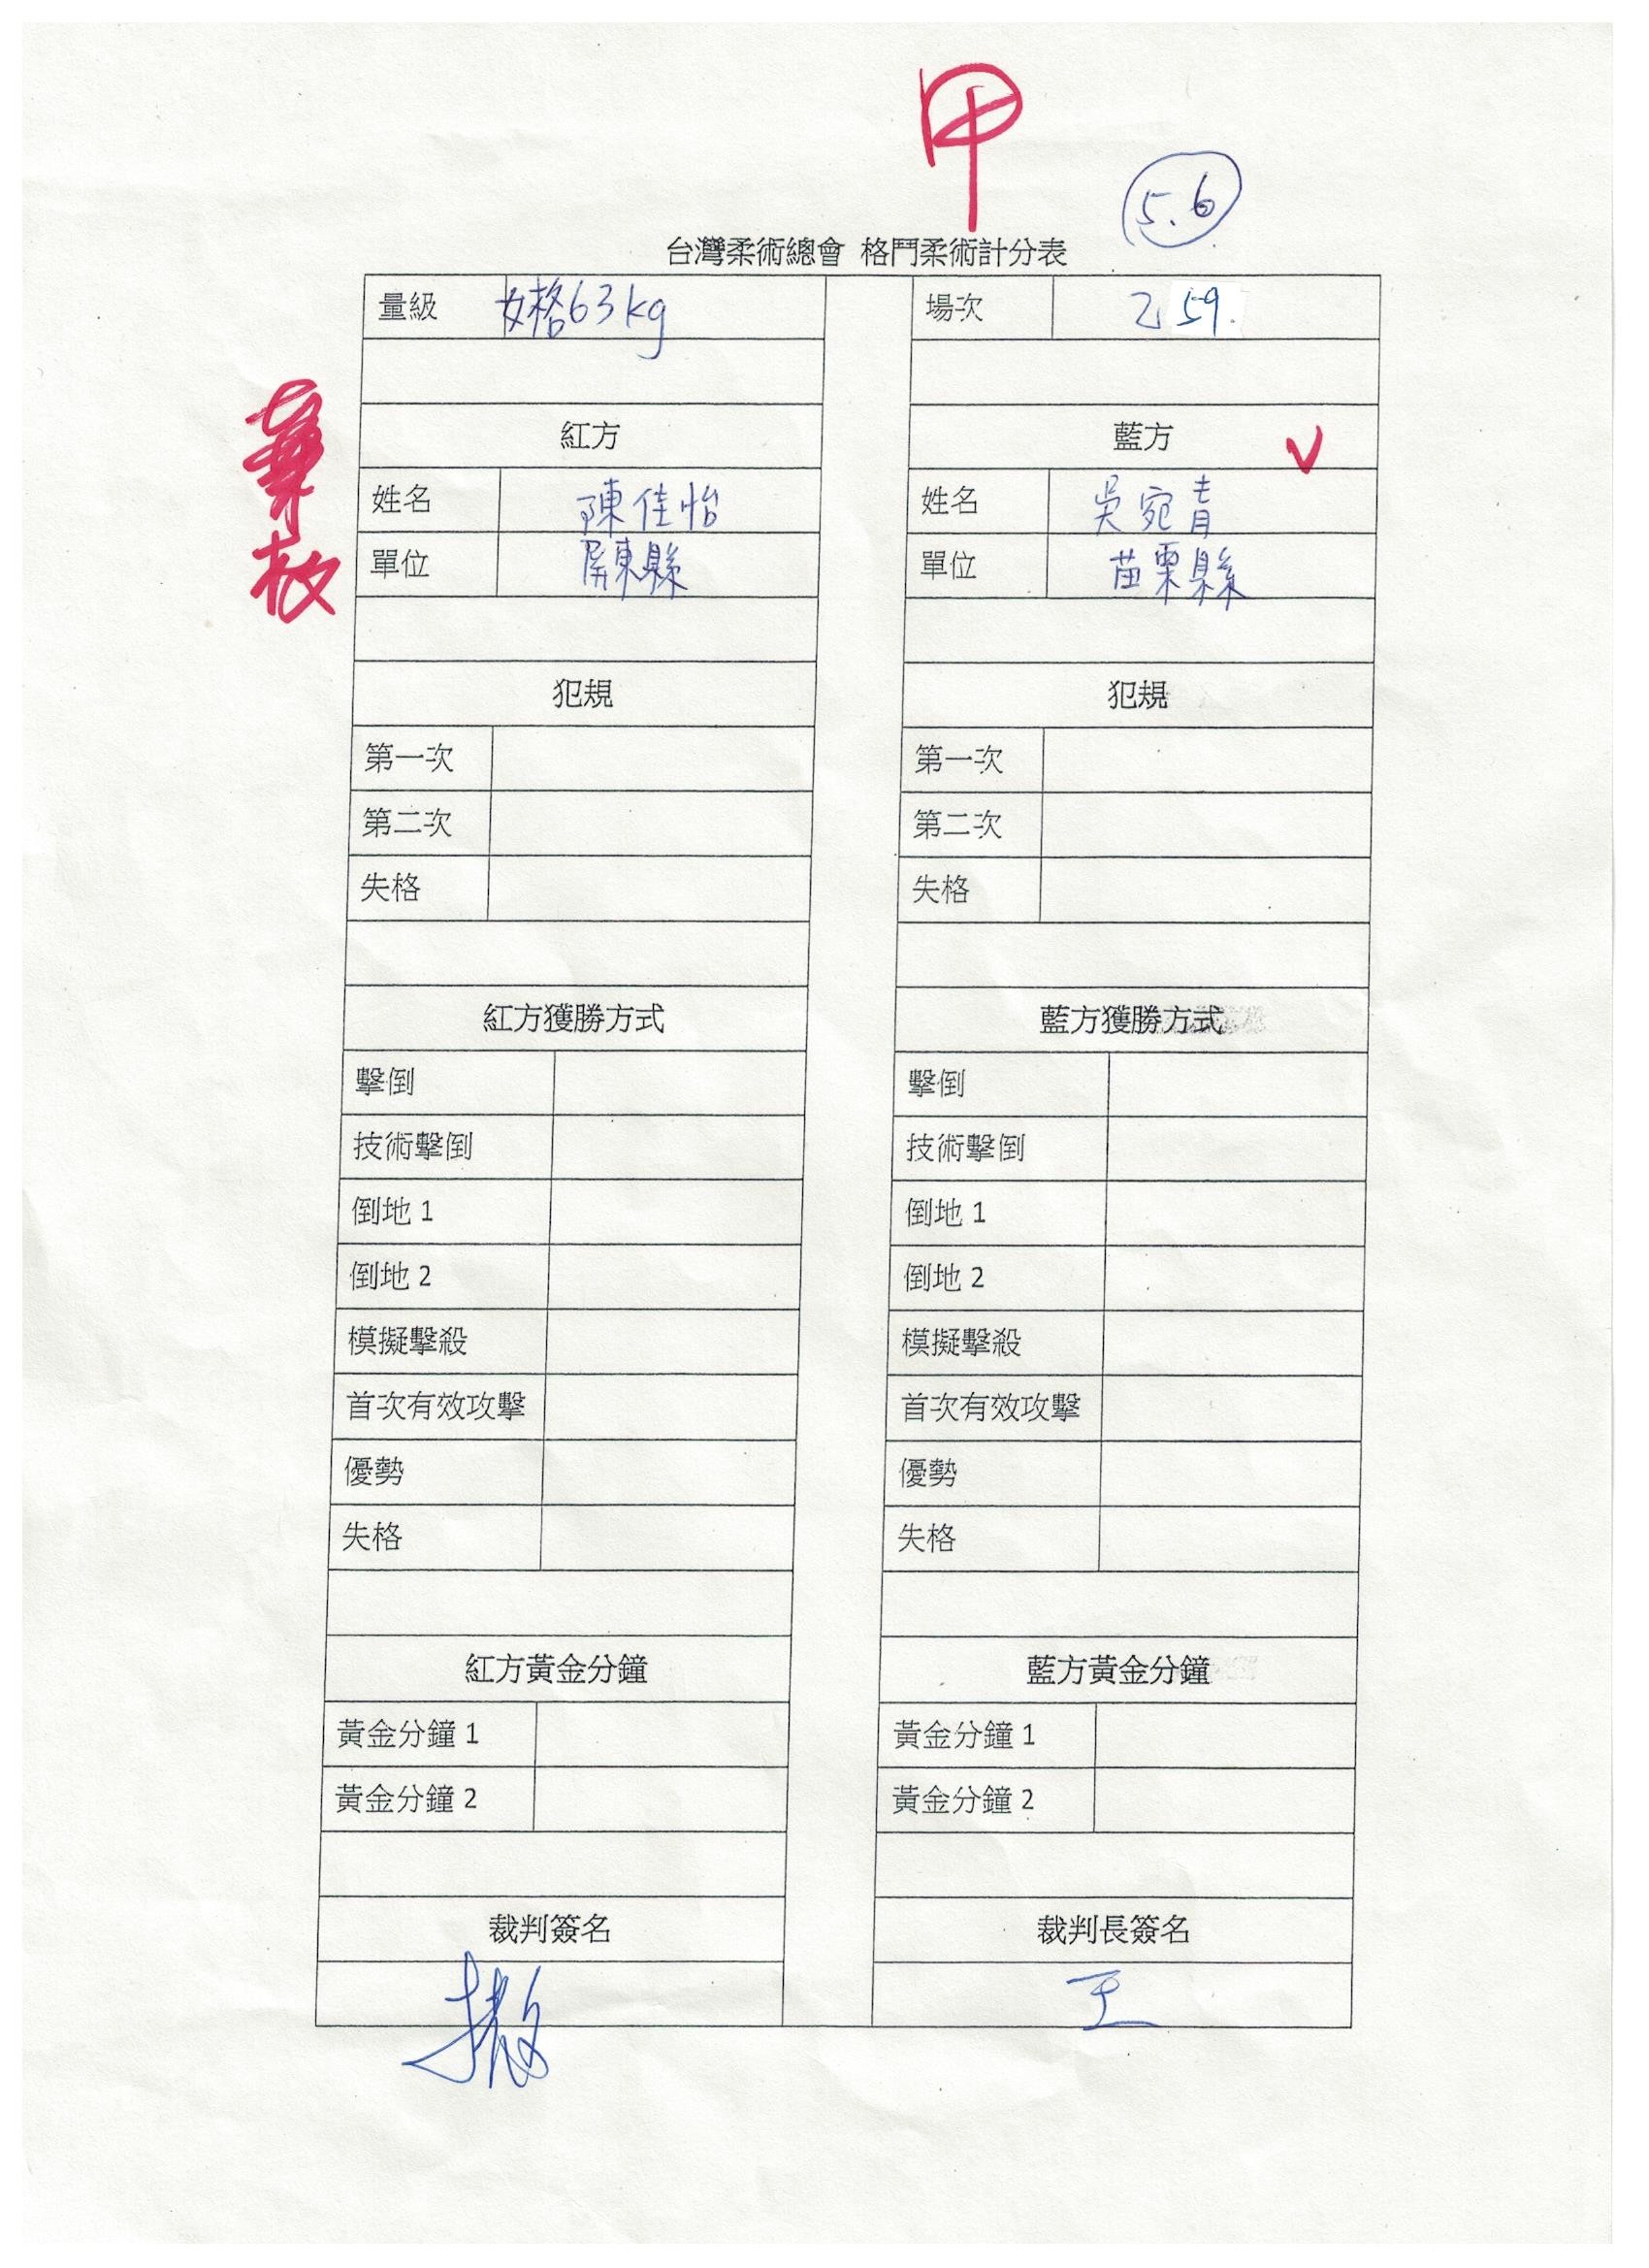 甲
5.6
台灣柔術總會 格鬥柔術計分表
量級 女格63kg 場次 乙 59.
紅方 藍方 ✓
棄
权
姓名 陳佳怡 姓名 吳宛青
單位 屏東縣 單位 苗栗縣
犯規 犯規
第一次 第一次
第二次 第二次
失格 失格
紅方獲勝方式 藍方獲勝方式
擊倒 擊倒
技術擊倒 技術擊倒
倒地 1 倒地 1
倒地 2 倒地 2
模擬擊殺 模擬擊殺
首次有效攻擊 首次有效攻擊
優勢 優勢
失格 失格
紅方黃金分鐘 藍方黃金分鐘
黃金分鐘 1 黃金分鐘 1
黃金分鐘 2 黃金分鐘 2
裁判簽名 裁判長簽名
王